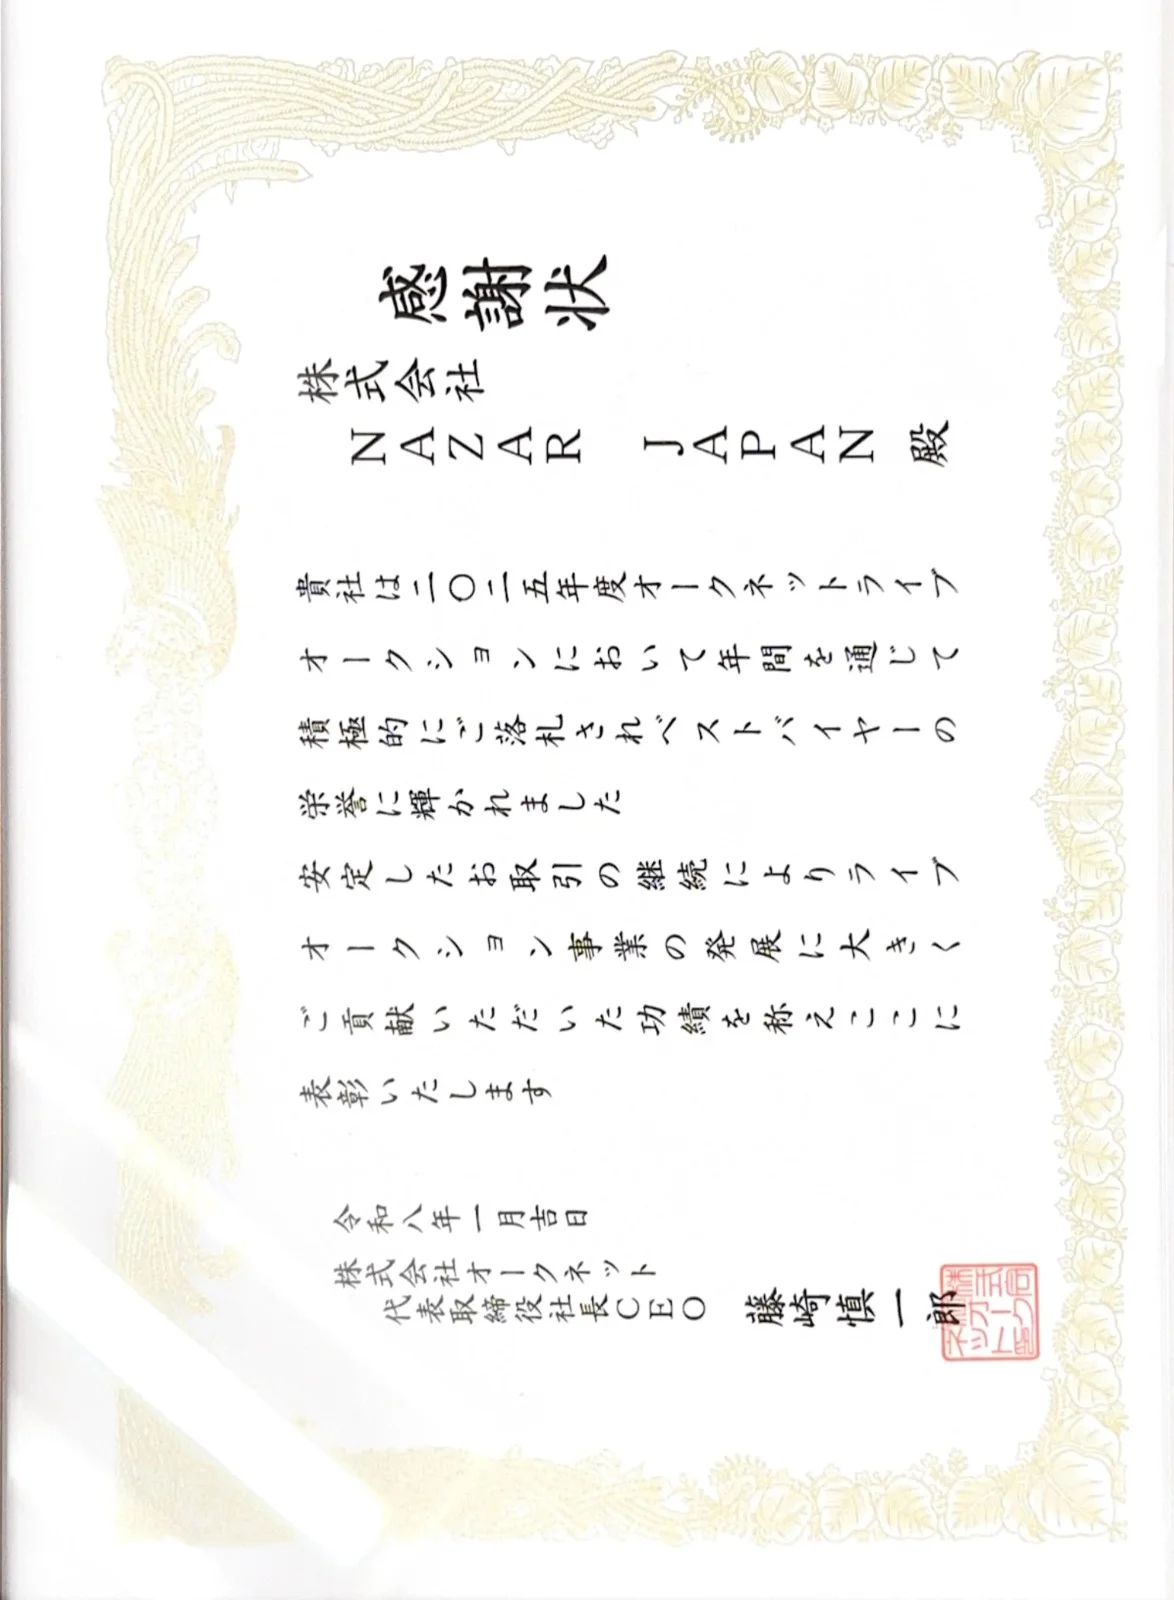 感謝状
株式会社
NAZAR JAPAN 殿
貴社は二〇二五年度オークネットライブ
オークションにおいて年間を通じて
積極的にご落札されベストバイヤーの
栄誉に輝かれました
安定したお取引の継続によりライブ
オークション事業の発展に大きく
ご貢献いただいた功績を称えここに
表彰いたします
令和八年一月吉日
株式会社オークネット
代表取締役社長CEO 藤崎慎一郎